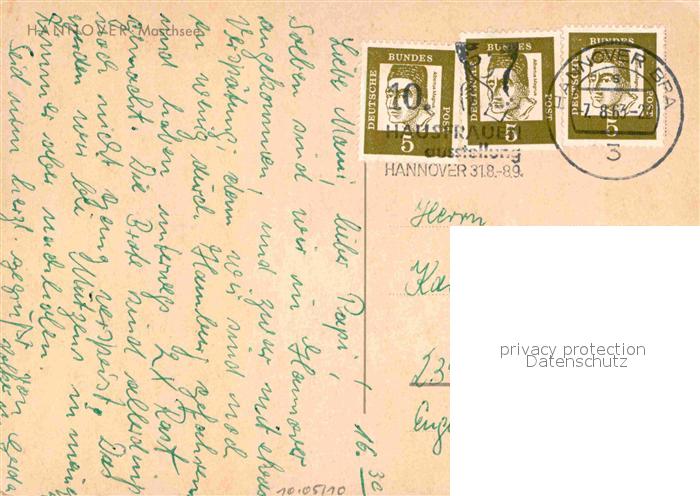 HANNOVER, Maschsee
Liebe Mami, lieber Papi!
Soeben sind wir in Hannover
angekommen, und zwar mit etwas
Verspätung, denn wir sind noch
ein wenig durch Hamburg gefahren
und haben unterwegs 2x Rast
gemacht. Die Brote sind allerdings
noch nicht ganz verspeist. Das
werden wir bei Mutzens in meinem
Zimmer aber nachholen.
Seid nun herzl. gegrüßt von
16.30
10.05/10
DEUTSCHE BUNDES POST
Albertus Magnus
5
DEUTSCHE BUNDES POST
Albertus Magnus
5
DEUTSCHE BUNDES POST
5
10.
HAUSFRAUEN
ausstellung
HANNOVER 31.8.-8.9.
HANNOVER BPA
7.8.63
3
Herrn
privacy protection
Datenschutz